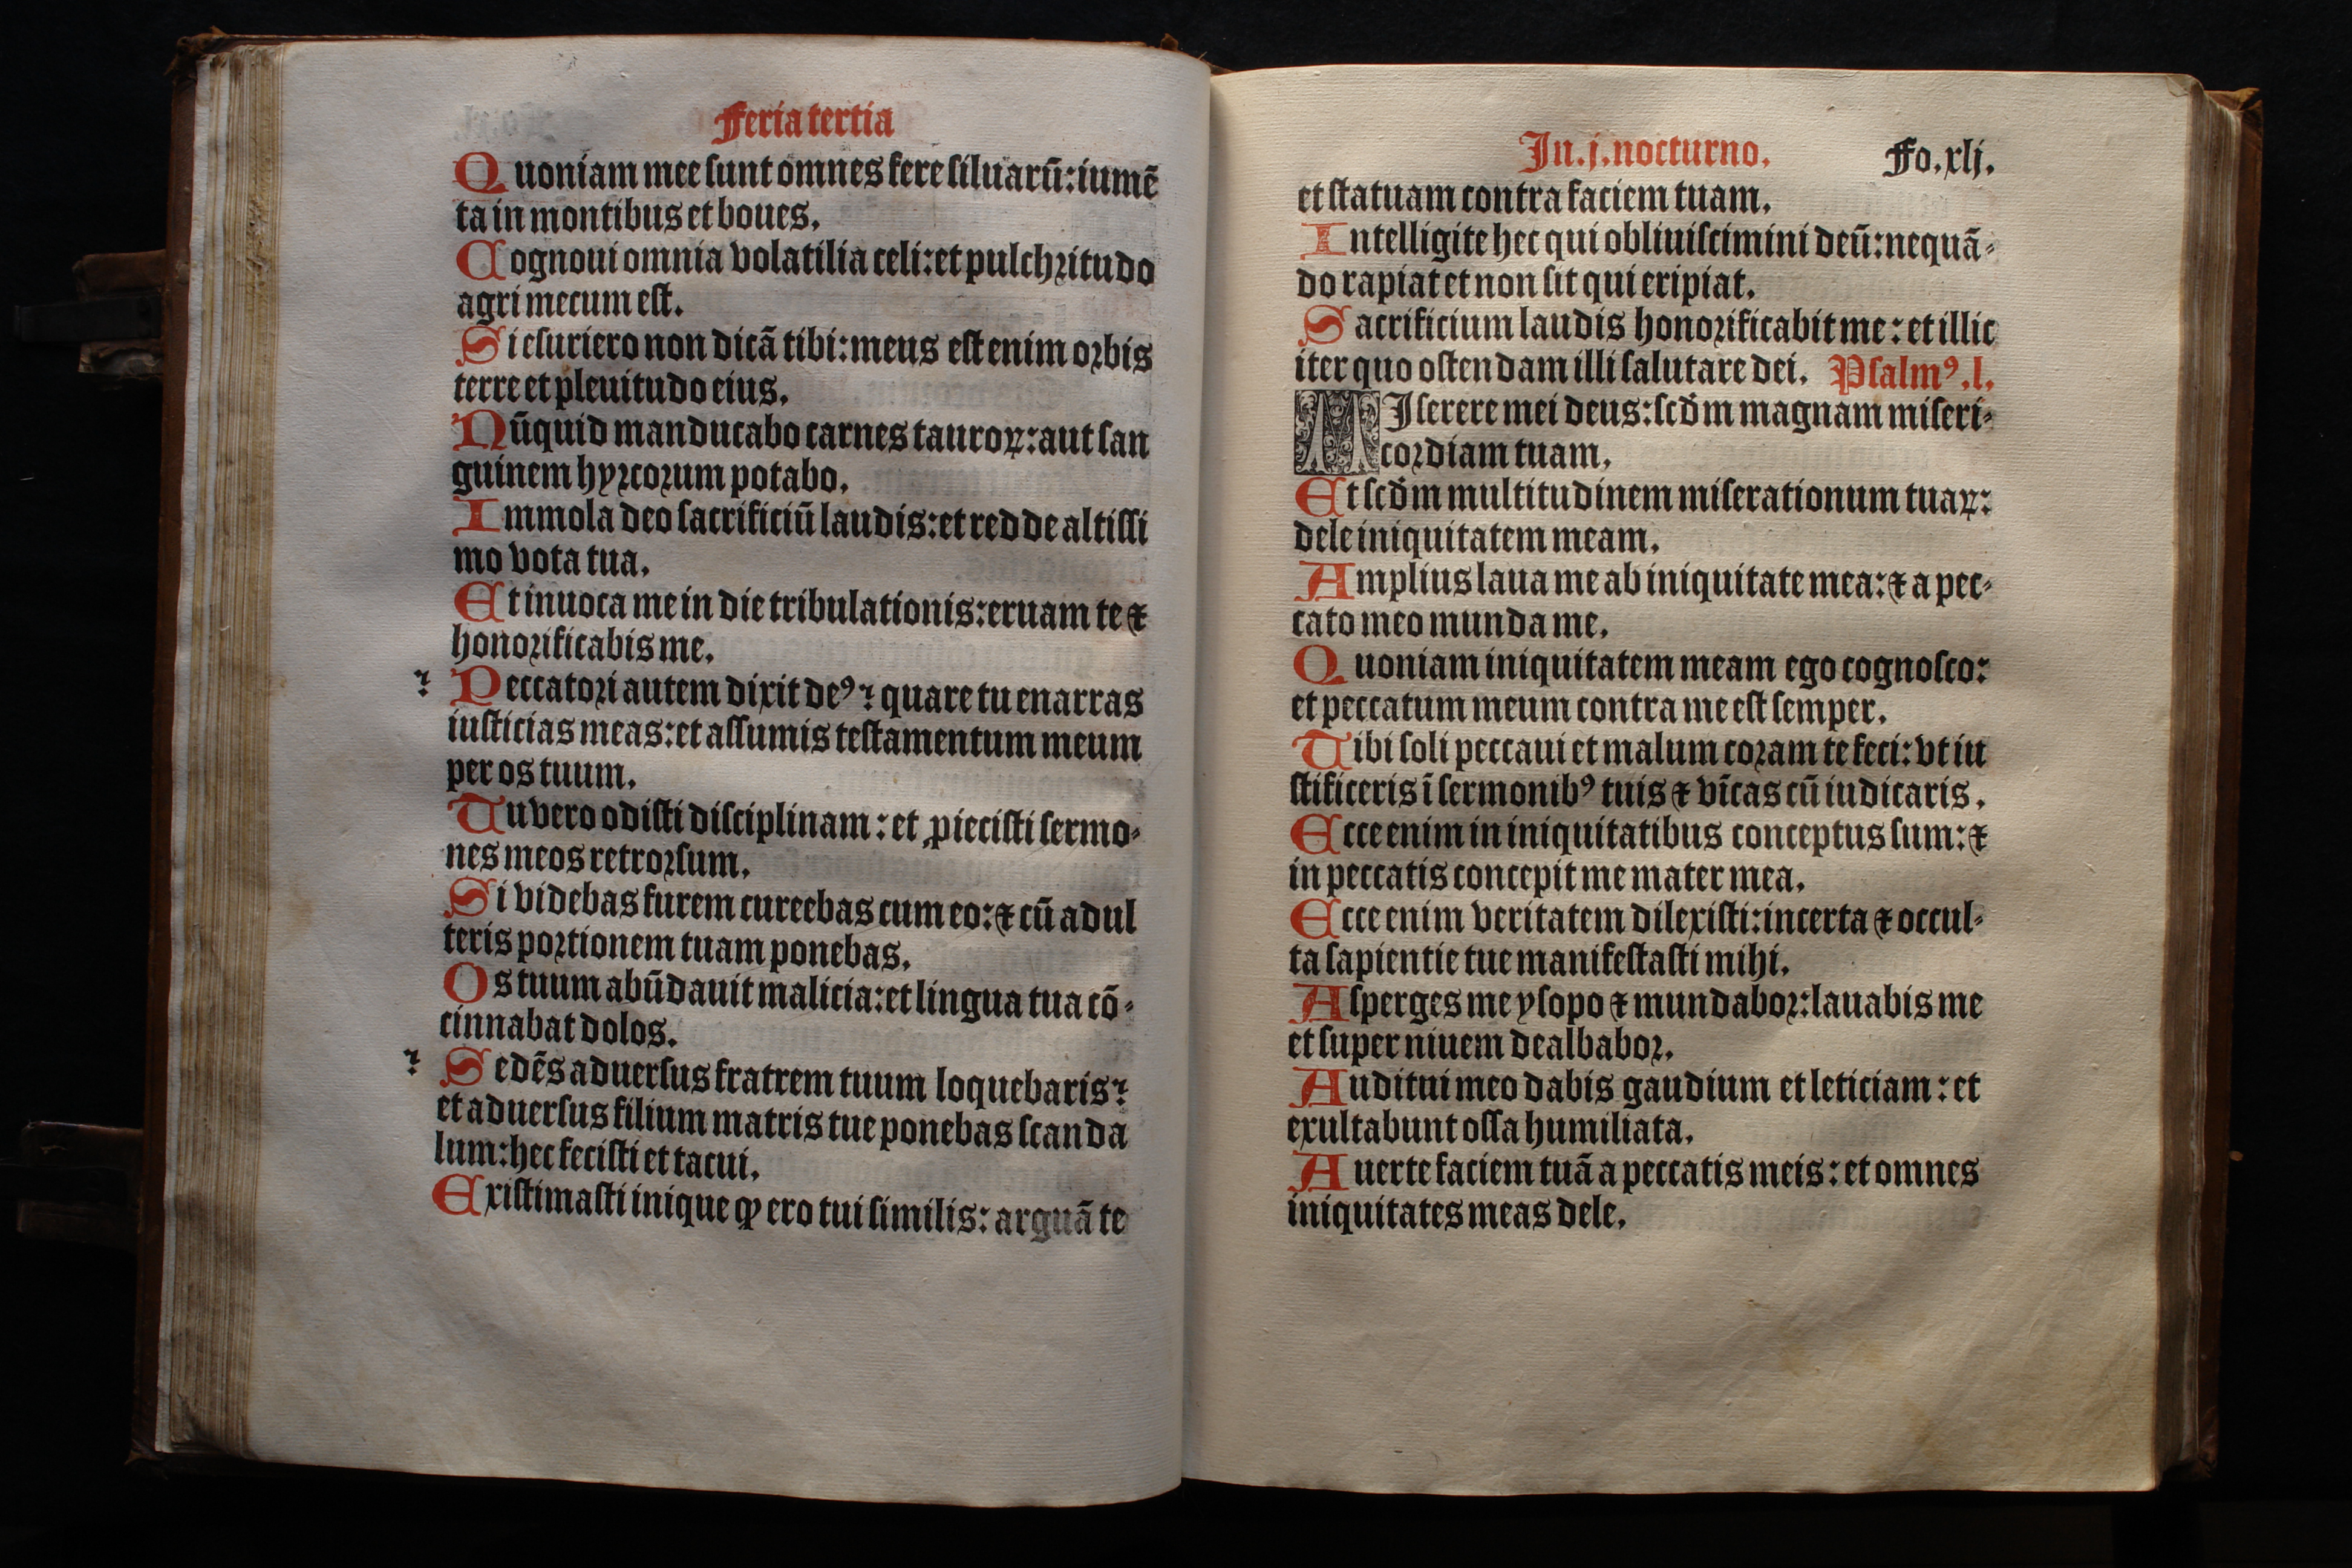 Feria tertia
Quoniam mee sunt omnes fere siluarū: iumē
ta in montibus et boues.
Cognoui omnia volatilia celi: et pulchritudo
agri mecum est.
Si esuriero non dicā tibi: meus est enim orbis
terre et pleuitudo eius.
Nūquid manducabo carnes tauroꝝ: aut san
guinem hyrcorum potabo.
Immola deo sacrificiū laudis: et redde altissi
mo vota tua.
Et inuoca me in die tribulationis: eruam te ⁊
honorificabis me.
? Peccatori autem dixit deꝰ? quare tu enarras
iusticias meas: et assumis testamentum meum
per os tuum.
Tu vero odisti disciplinam: et ꝓiecisti sermo-
nes meos retrorsum.
Si videbas furem cureebas cum eo: ⁊ cū adul
teris portionem tuam ponebas.
Os tuum abūdauit malicia: et lingua tua cō-
cinnabat dolos.
? Sedēs aduersus fratrem tuum loquebaris?
et aduersus filium matris tue ponebas scanda
lum: hec fecisti et tacui.
Existimasti inique ꝙ ero tui similis: arguā te
In .j. nocturno. Fo. xlj.
et statuam contra faciem tuam.
Intelligite hec qui obliuiscimini deū: nequā-
do rapiat et non sit qui eripiat.
Sacrificium laudis honorificabit me: et illic
iter quo ostendam illi salutare dei. Psalmꝰ .l.
MIserere mei deus: scd̄m magnam miseri-
cordiam tuam.
Et scd̄m multitudinem miserationum tuaꝝ:
dele iniquitatem meam.
Amplius laua me ab iniquitate mea: ⁊ a pec-
cato meo munda me.
Quoniam iniquitatem meam ego cognosco:
et peccatum meum contra me est semper.
Tibi soli peccaui et malum coram te feci: vt iu
stificeris ī sermonibꝰ tuis ⁊ vīcas cū iudicaris.
Ecce enim in iniquitatibus conceptus sum: ⁊
in peccatis concepit me mater mea.
Ecce enim veritatem dilexisti: incerta ⁊ occul-
ta sapientie tue manifestasti mihi.
Asperges me ysopo ⁊ mundabor: lauabis me
et super niuem dealbabor.
Auditui meo dabis gaudium et leticiam: et
exultabunt ossa humiliata.
Auerte faciem tuā a peccatis meis: et omnes
iniquitates meas dele.